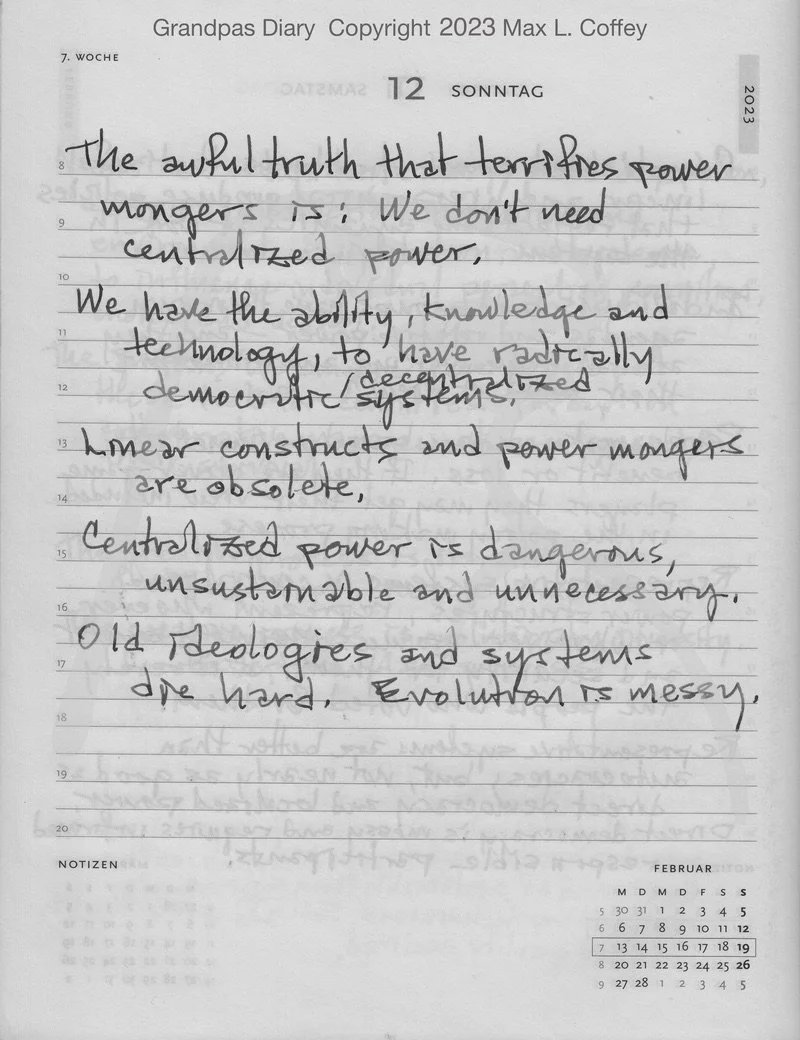 Grandpas Diary Copyright 2023 Max L. Coffey
7. WOCHE
12 SONNTAG
2023
8 The awful truth that terrifies power
9 mongers is: We don't need
centralized power.
10
We have the ability, knowledge and
11 technology, to have radically
/decentralized
12 democratic systems.
13 Linear constructs and power mongers
are obsolete,
14
15 Centralized power is dangerous,
unsustainable and unnecessary.
16
Old ideologies and systems
17
die hard. Evolution is messy.
18
19
20
NOTIZEN
FEBRUAR
M D M D F S S
5 30 31 1 2 3 4 5
6 6 7 8 9 10 11 12
7 13 14 15 16 17 18 19
8 20 21 22 23 24 25 26
9 27 28 1 2 3 4 5